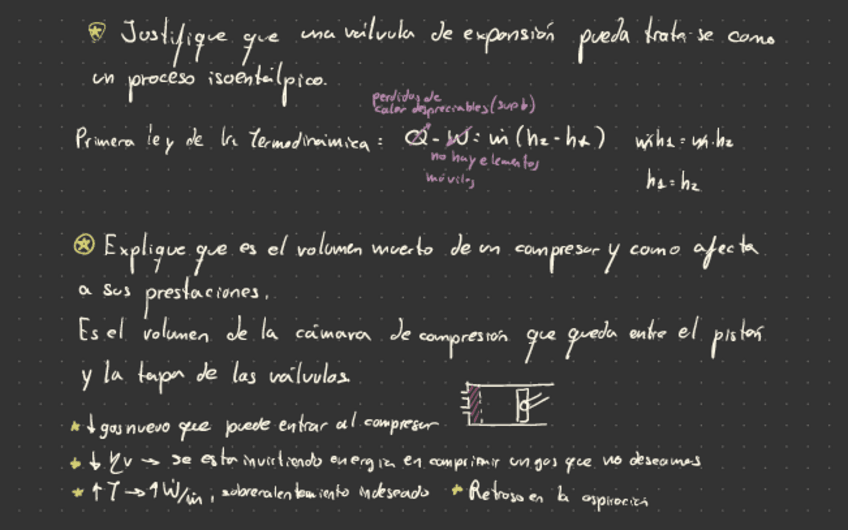 Justifique que una válvula de expansión pueda tratarse como
un proceso isoentálpico.
perdidas de
calor despreciables (supb)
Primera ley de la Termodinámica: Q - W = ṁ (h₂ - h₁) ṁh₁ = ṁ·h₂
no hay elementos
móviles
h₁ = h₂
Explique que es el volumen muerto de un compresor y como afecta
a sus prestaciones.
Es el volumen de la cámara de compresión que queda entre el pistón
y la tapa de las válvulas.
↓ gas nuevo que puede entrar al compresor
↓ ηv → se esta invirtiendo energía en comprimir un gas que no deseamos
↑ T → ↑ Ẇ/ṁ, sobrecalentamiento indeseado
Retraso en la aspiración